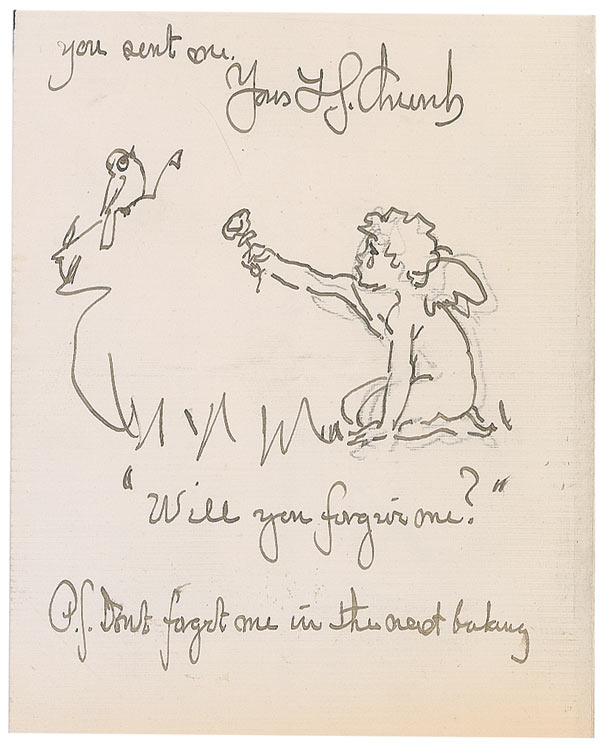 you sent me.
Yours F. S. Church
"Will you forgive me?"
P.S. Dont forget me in the next baking